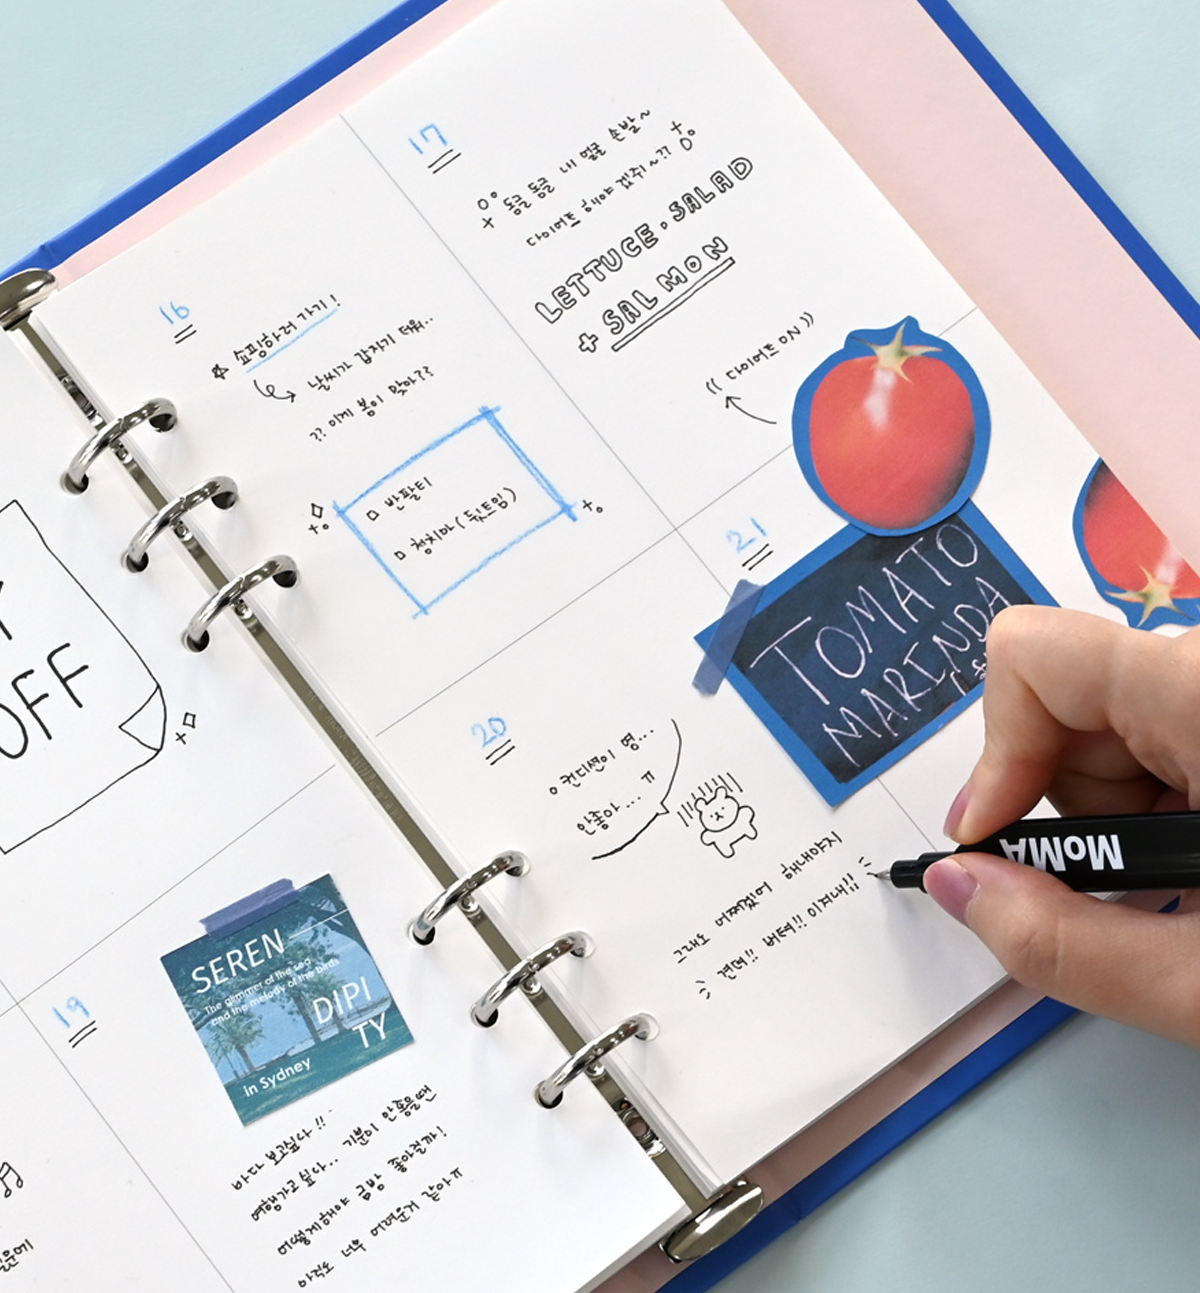 OFF
16
쇼핑하러 가기!
날씨가 갑자기 더워..
?? 이게 봄이 맞아??
반팔티
청치마 (뒷트임)
17
동글동글 내 얼굴 손발~
다이어트 해야 겠쥐~??
LETTUCE. SALAD
+ SALMON
(( 다이어트 ON ))
19
SEREN
The glimmer of the sea
and the melody of the birds
DIPI
TY
in Sydney
바다 보고싶다!!
여행가고 싶다.. 기분이 안좋을땐
어떻게해야 금방 좋아질까!
아직도 너무 어려운거 같아ㅠ
20
컨디션이 영...
안좋아... ㅠ
그래도 어쩌겠어 해내야지
견뎌!! 버텨!! 이겨내!!
21
TOMATO
MARINDA
MoMA